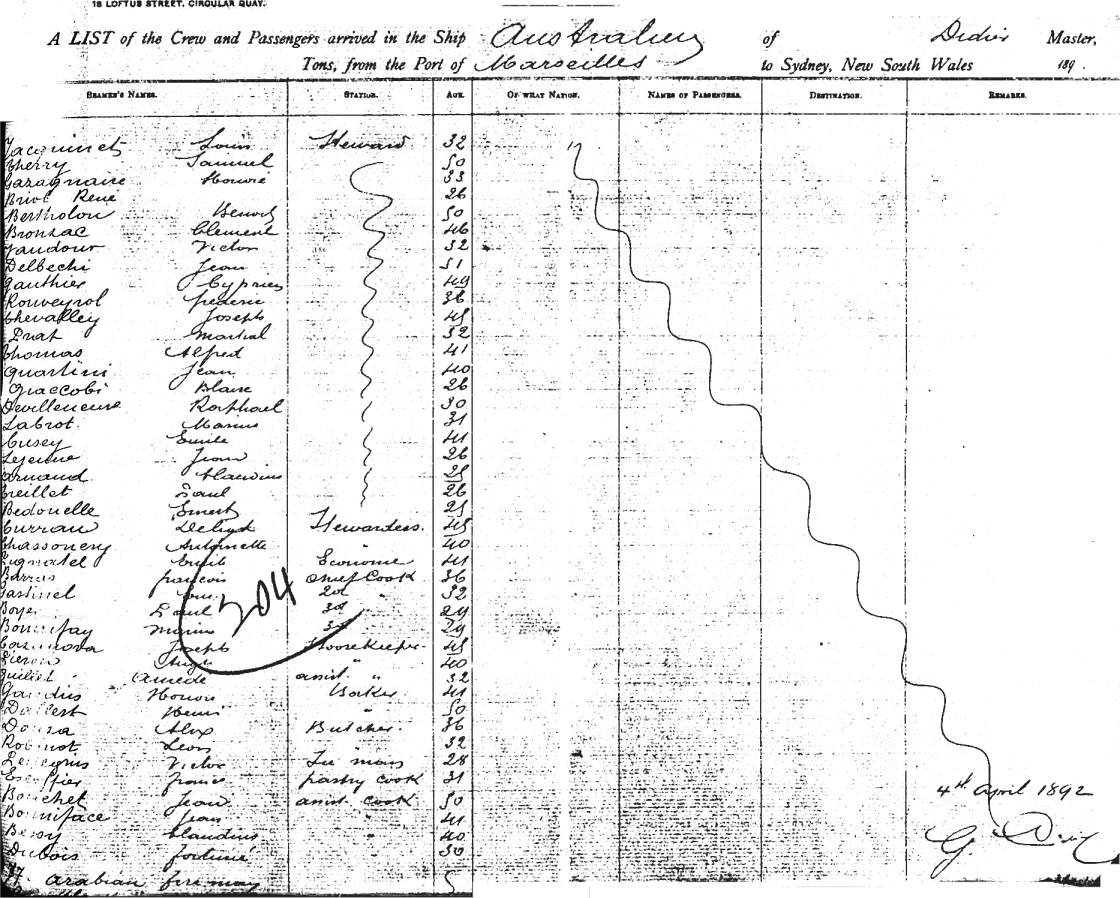 18 LOFTUS STREET, CIRCULAR QUAY.
A LIST of the Crew and Passengers arrived in the Ship Australien of Didier Master,
Tons, from the Port of Marseilles to Sydney, New South Wales 189 .
SEAMEN'S NAMES. STATION. AGE. OF WHAT NATION. NAMES OF PASSENGERS. DESTINATION. REMARKS.
Jacquinet Louis Steward 32
Cherry Samuel 50
Garagnaire Honoré 33
Briot René 26
Bertholon Benoit 50
Bronzac Clement 46
Vaudour Victor 32
Delbechi Jean 51
Gauthier Cyprien 49
Rouveyrol frederic 36
Chevalley Joseph 45
Prat Martial 32
Thomas Alfred 41
Quartini Jean 40
Giaccobi Blaise 26
Devilleneuve Raphael 30
Labrot Marius 31
Cusey Emile 41
Lejeune Jean 26
Arnaud Claudius 25
Treillet Paul 26
Bedouelle Ernest 25
Curran 45
Chassonery Antoinette " 40
Pignatel Emile Econome 41
Barras francois chief Cook 36
Gastinel 2d " 32
Boyer Paul 3d " 29
Bonnifay Marius 3d " 29
Casanova Joseph Storekeeper 45
40
Amédé assist. " 32
Honoré Baker 41
Henri " 50
Alex Butcher. 36
Robinot Leon " 32
Victor 28
francis pastry cook 31
Bouchet Jean assist. cook 50
Boniface Jean " 41
Claudius " 40
Dubois fortuné " 30
arabian firemen
204
4th April 1892
G. Didier